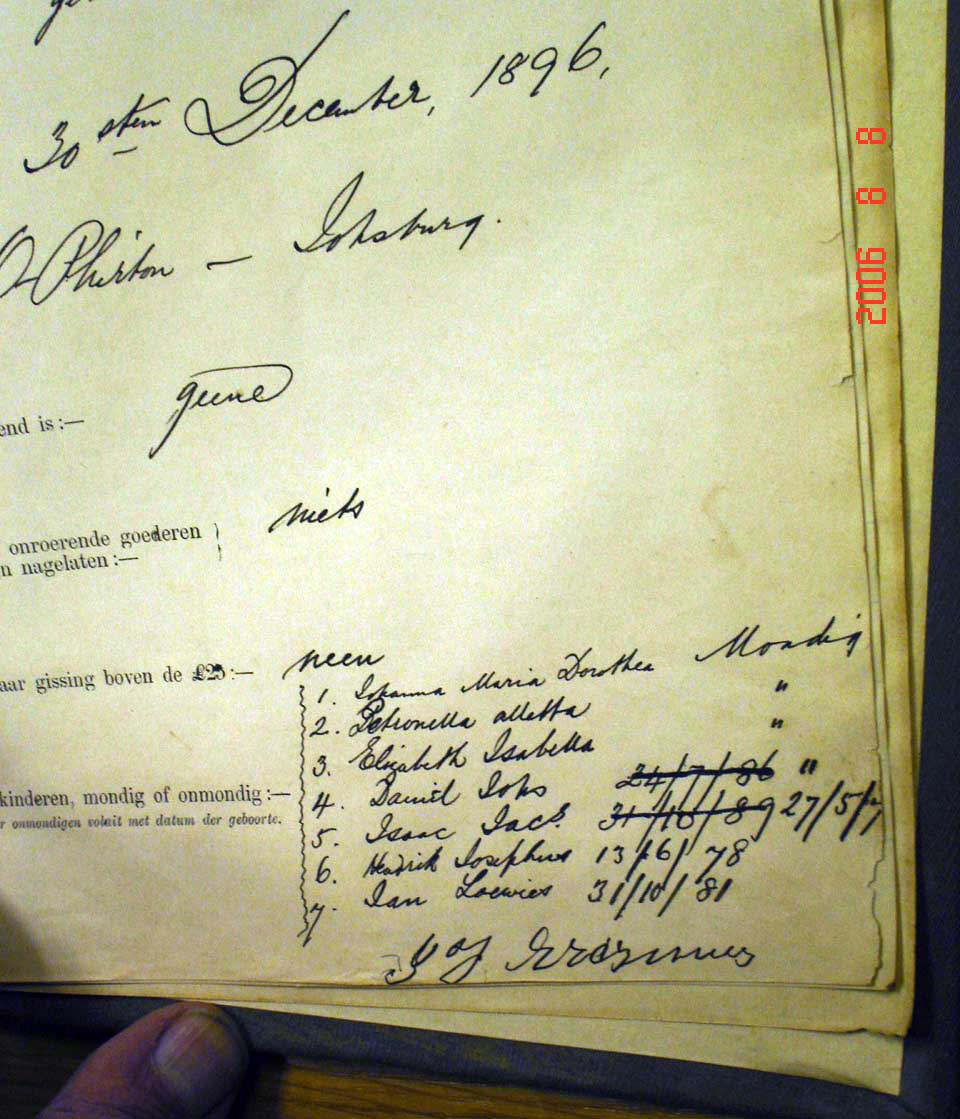 30sten December, 1896,
Phirton — Johsburg.
end is:— geene
onroerende goederen
n nagelaten:— niets
aar gissing boven de £25:— neen
1. Johanna Maria Dorothea Mondig
2. Petronella aletta "
3. Elizabeth Isabella "
kinderen, mondig of onmondig:— 4. Daniel Johs 24/7/86 "
r onmondigen voluit met datum der geboorte. 5. Isaac Jacs. 31/10/89 27/5/7
6. Hendrik Josephus 13/6/78
7. Jan Loewies 31/10/81
Erasmus
2006 8 8